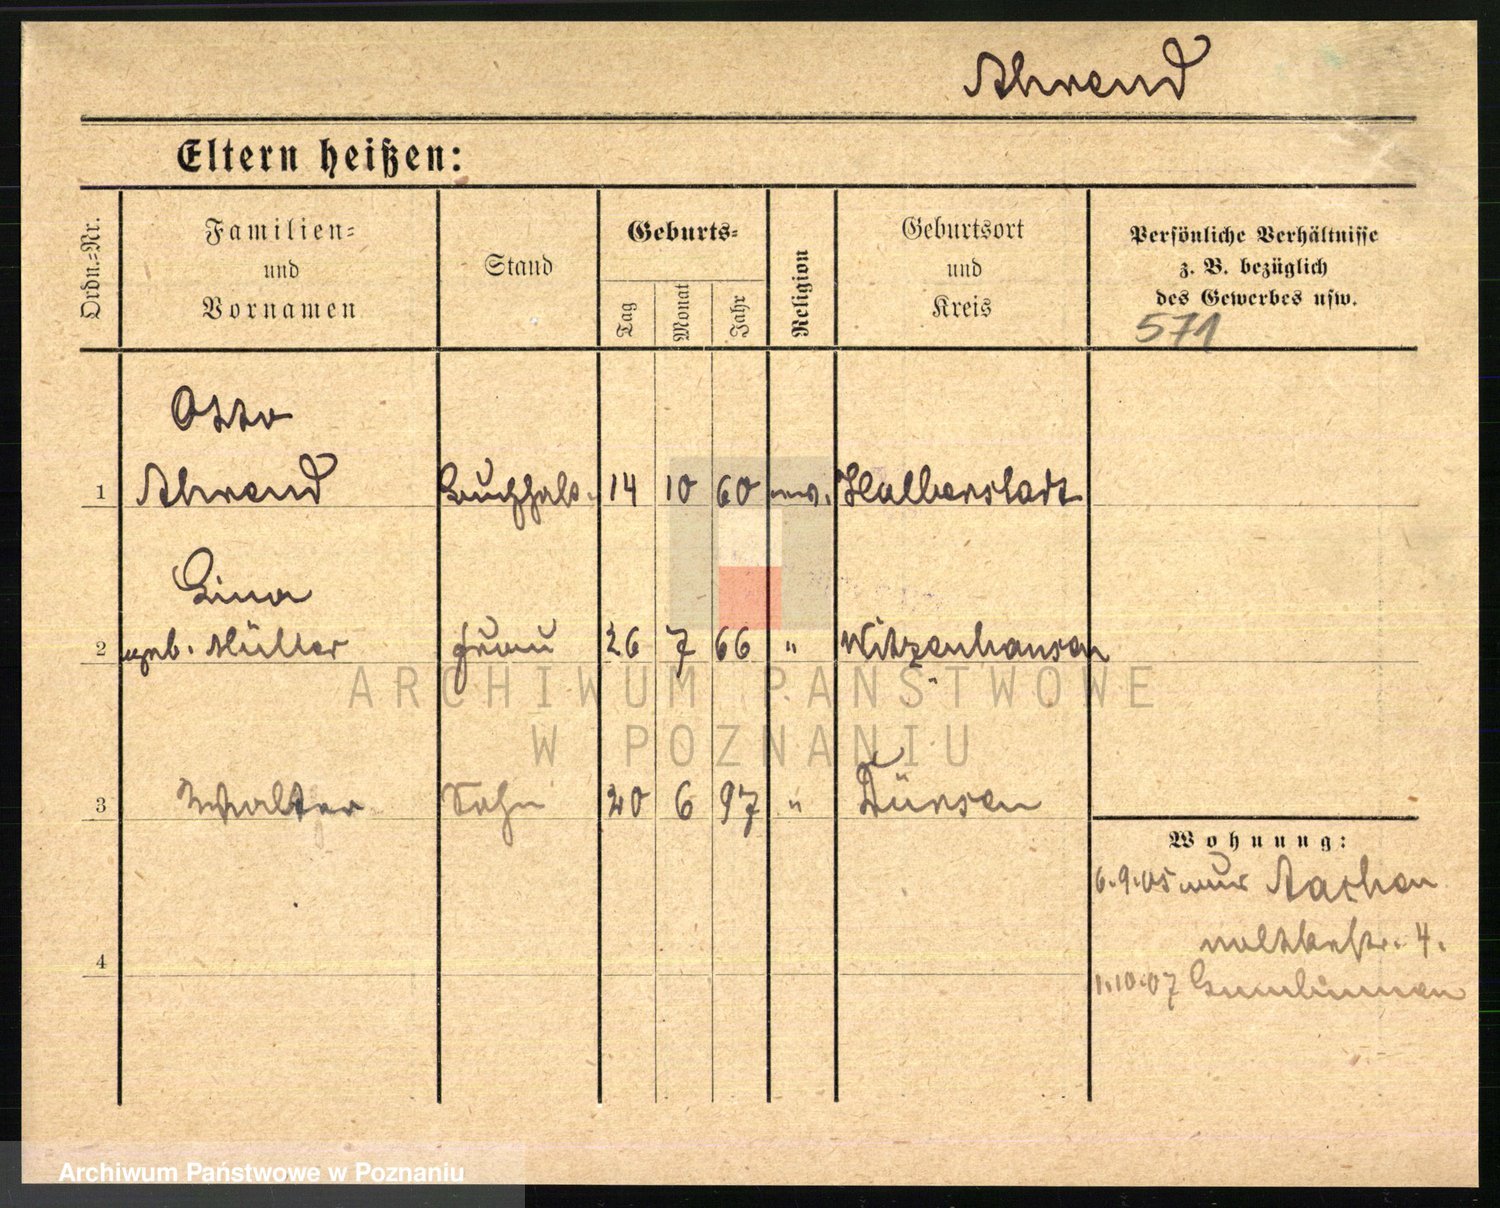 Ahrend
Eltern heißen:
Ordn.=Nr.
Familien=
und
Vornamen
Stand
Geburts=
Tag
Monat
Jahr
Religion
Geburtsort
und
Kreis
Persönliche Verhältnisse
z. B. bezüglich
des Gewerbes usw.
571
Otto
1 Ahrend Buchhalt. 14 10 60 ev. Halberstadt
Lina
2 geb. Müller Frau 26 7 66 " Witzenhausen
3 Walter Sohn 20 6 97 " Düren
Wohnung:
6.9.05 Aachen
Moltkestr. 4.
4
1.10.07 Gumbinnen
ARCHIWUM PAŃSTWOWE
W POZNANIU
Archiwum Państwowe w Poznaniu